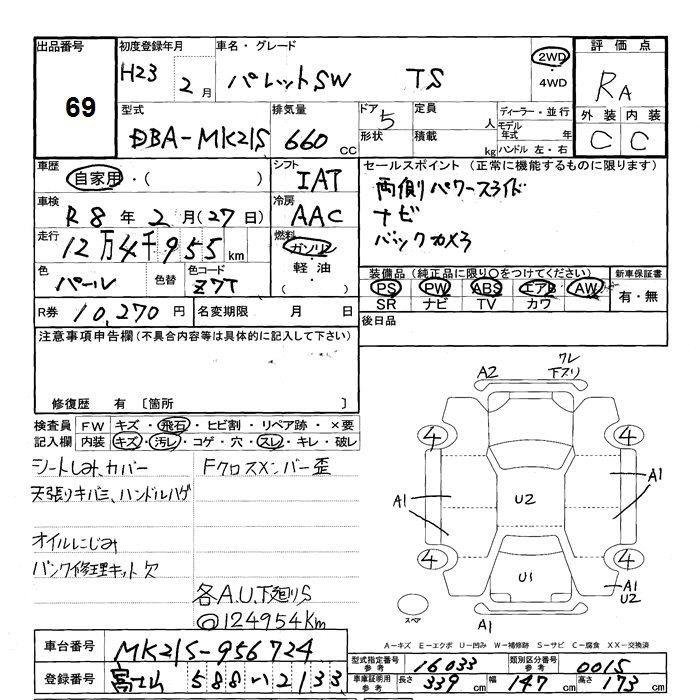 出品番号 初度登録年月 車名・グレード 評価点
69
H23 2月 パレットSW TS 2WD・4WD RA
外装 内装
C C
型式 排気量 ドア 定員 ディーラー・並行
DBA-MK21S 660cc 5 形状 積載 人 kg モデル年式 年 ハンドル 左・右
車歴 シフト セールスポイント(正常に機能するものに限ります)
自家用・( ) IAT 両側パワースライド
車検 冷房 ナビ
R8年2月(27日) AAC バックカメラ
走行 燃料
12万4千955km ガソリン・軽油・( )
色 色替 色コード 装備品(純正品に限り○をつけてください) 新車保証書
パール Z7T PS PW ABS エアB AW 有・無
SR ナビ TV カワ
R券 10,270円 名変期限 月 日 後日品
注意事項申告欄(不具合内容等は具体的に記入して下さい)
修復歴 有 〔箇所 〕
検査員記入欄 FW キズ・飛石・ヒビ割・リペア跡・×要
内装 キズ・汚レ・コゲ・穴・スレ・キレ・破レ
シートしみ、カバー Fクロスメンバー歪
天張りキバミ、ハンドルハゲ
オイルにじみ
パンク修理キット欠
各A.U.下廻りS
@124954Km
A2 ワレ 下スリ
4 4
A1 U2 A1
4 4
U1 A1 U2
スペア A1
A-キズ E-エクボ U-凹み W-補修跡 S-サビ C-腐食 XX-交換済
車台番号 MK21S-956724
型式指定番号参考 16033 類別区分番号参考 0015
登録番号 富士山 588 い 2133
車庫証明用参考 長さ 339cm 幅 147cm 高さ 173cm